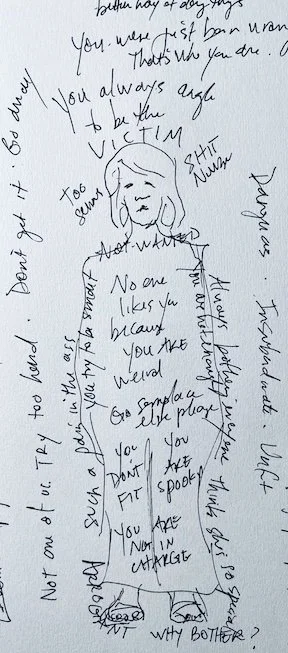 better way of doing things
You were just born wrong
That's who you are.
You always angle
to be the
VICTIM
SHIT
Nurse
TOO
Serious
NOT WANTED
No one
likes you
because
you ARE
weird
Go someplace
else please
YOU
DON'T
FIT
YOU
ARE
SPOOKY
YOU ARE
NOT IN
CHARGE
WHY BOTHER?
Don't get it. Go away
Not one of us. TRY too hard.
Such a pain in the ass
You try to be smart
You are not enough
Always bothering everyone
thinks she's so special
Dangerous. Insubordinate. Unfit